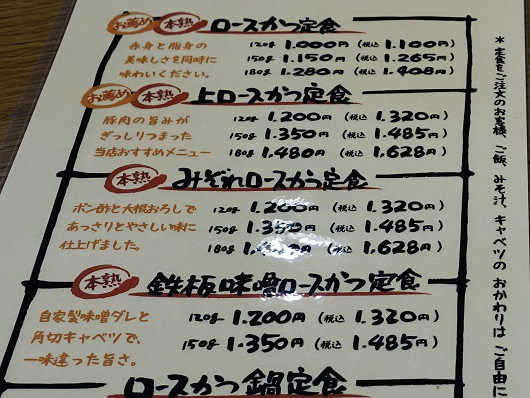 お薦め 本熟 ロースかつ定食
赤身と脂身の 120g 1.000円 (税込 1.100円)
美味しさを同時に 150g 1.150円 (税込 1.265円)
味わいください。 180g 1.280円 (税込 1.408円)
お薦め 本熟 上ロースかつ定食
豚肉の旨みが 120g 1.200円 (税込 1.320円)
ぎっしりつまった 150g 1.350円 (税込 1.485円)
当店おすすめメニュー 180g 1,480円 (税込 1,628円)
本熟 みぞれロースかつ定食
ポン酢と大根おろしで 120g 1.200円 (税込 1.320円)
あっさりとやさしい味に 150g 1.350円 (税込 1.485円)
仕上げました。 180g 円 (税込 1,628円)
本熟 鉄板味噌ロースかつ定食
自家製味噌ダレと 120g 1.200円 (税込 1.320円)
角切キャベツで、 150g 1.350円 (税込 1.485円)
一味違った旨さ。
ロースかつ鍋定食
*定食をご注文のお客様、ご飯、みそ汁、キャベツの おかわりは ご自由に